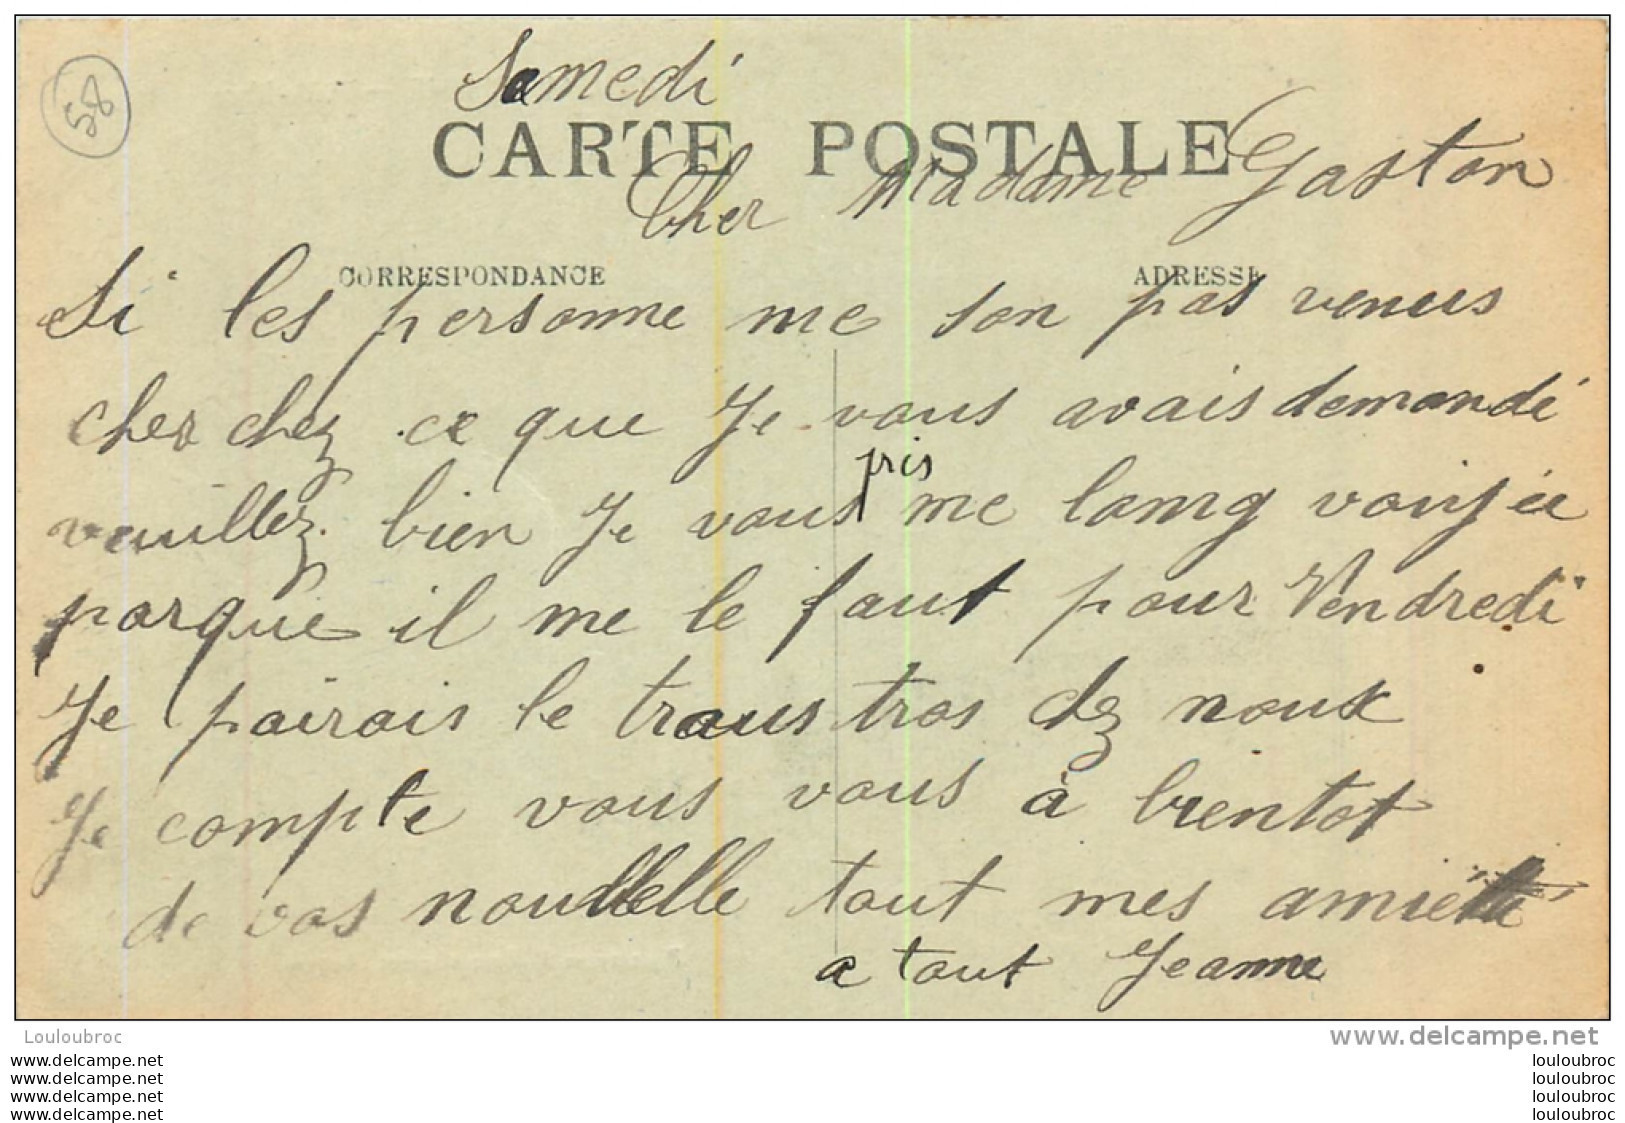 58
Samedi
CARTE POSTALE
Cher Madame Gaston
CORRESPONDANCE
ADRESSE
Si les personne me son pas venus
cher chez ce que Je vous avais demandé
pris
veuillez bien Je vous me lamg
parque il me le faut pour Vendredi
Je pairais le trous tros chez nous
Je compte vous vous à bientot
de vos nouvellelle tout mes
a tout Jeanne
Louloubroc
www.delcampe.net
www.delcampe.net
louloubroc
www.delcampe.net
louloubroc
www.delcampe.net
louloubroc
www.delcampe.net
louloubroc